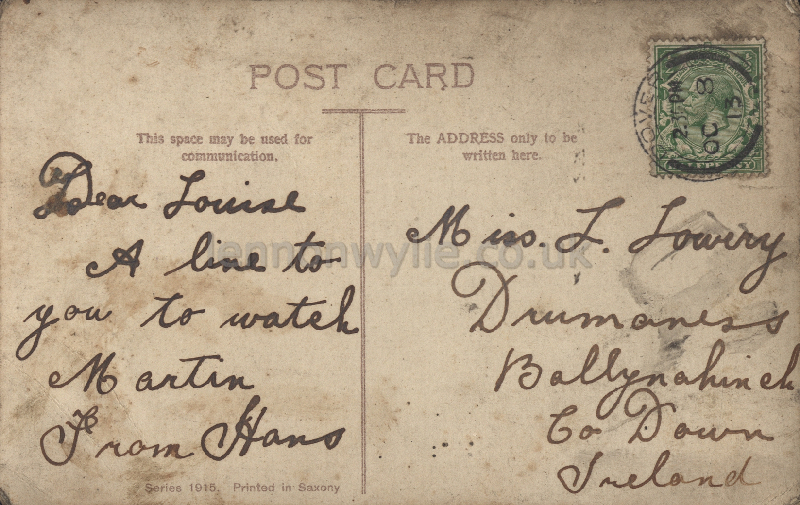 POST CARD
This space may be used for
communication.
The ADDRESS only to be
written here.
Dear Louise
A line to
you to watch
Martin
From Hans
Series 1915. Printed in Saxony
Miss. L. Lowry
Drumaness
Ballynahinch
Co Down
Ireland
2. PM
OC 8
13
lennonwylie.co.uk